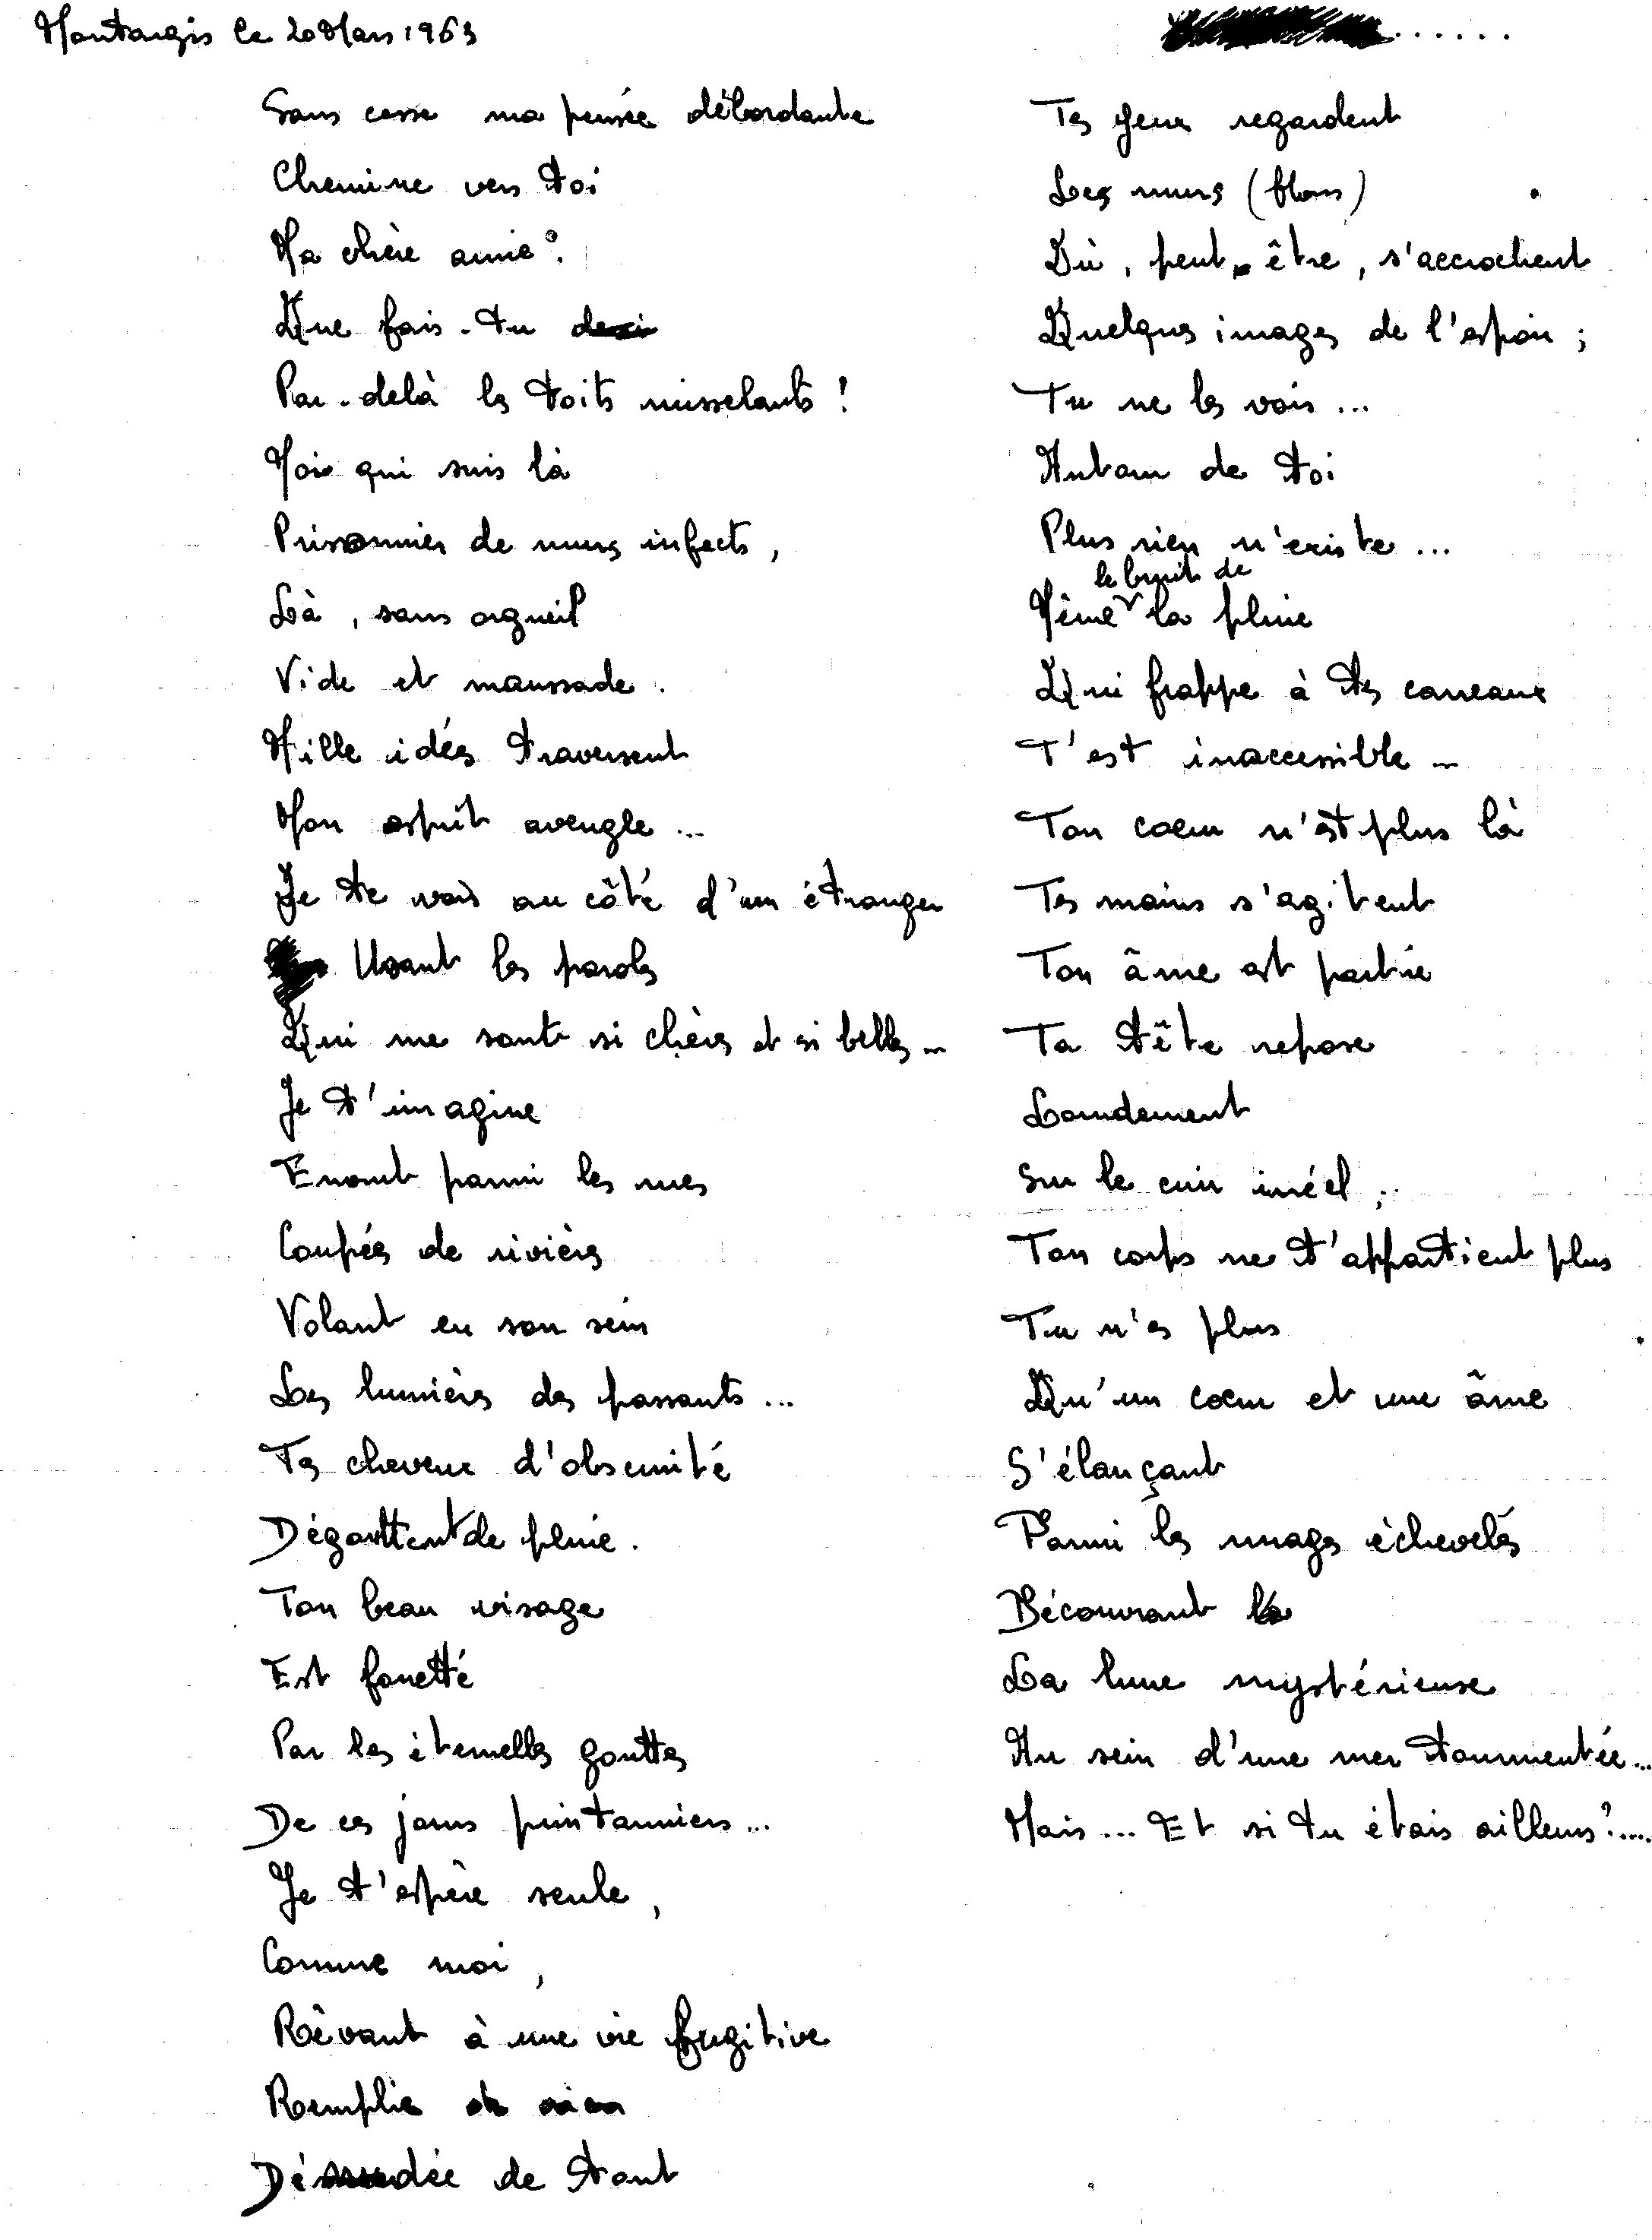 Montargis le 20 Mars 1963
......
Sans cesse ma pensée débordante
Chemine vers toi
Ma chère amie :
Que fais-tu
Par-delà les toits ruisselants !
Moi qui suis là
Prisonnier de murs infects,
Là, sans orgueil
Vide et maussade.
Mille idées traversent
Mon esprit aveugle ...
Je te vois au côté d'un étranger
Usant les paroles
Qui me sont si chères et si belles ...
Je t'imagine
Errant parmi les rues
Coupées de rivières
Volant en son sein
Les lumières des passants ...
Tes cheveux d'obscurité
Dégouttent de pluie.
Ton beau visage
Est fouetté
Par les éternelles gouttes
De ces jours printanniers ...
Je t'espère seule,
Comme moi,
Rêvant à une vie fugitive
Remplie de rien
Dénudée de tout
Tes yeux regardent
Les murs (blancs)
Où, peut-être, s'accrochent
Quelques images de l'espoir ;
Tu ne les vois ...
Autour de toi
Plus rien n'existe ...
Même le bruit de la pluie
Qui frappe à tes carreaux
T'est inaccessible ...
Ton coeur n'est plus là
Tes mains s'agitent
Ton âme est partie
Ta tête repose
Lourdement
Sur le cuir irréel ;
Ton corps ne t'appartient plus
Tu n'es plus
Qu'un coeur et une âme
S'élançant
Parmi les nuages échevelés
Découvrant
La lune mystérieuse
Au sein d'une mer tourmentée ...
Mais ... Et si tu étais ailleurs ? ....